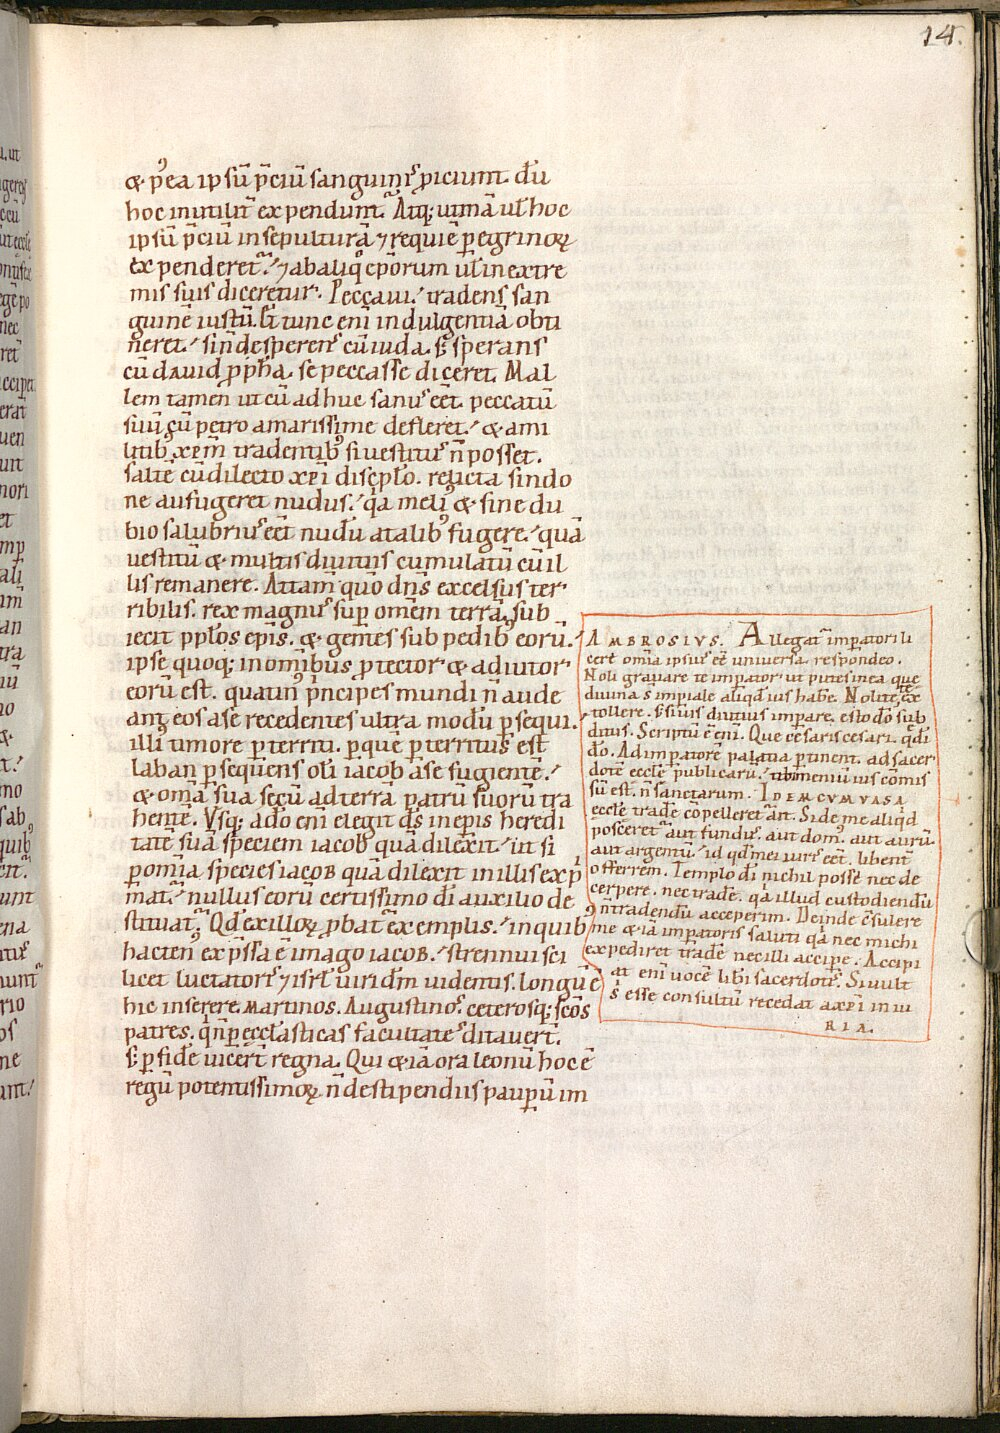 14.
& p̄ea ipsū p̄ciū sanguinis ꝓiciunt dū
hoc inutilit̄ expendunt. Atq; utinā ul̄ hoc
ipsū p̄ciū in sepulturā ⁊ requiē peregrinoꝝ
expenderet̄. ⁊ ab aliq̊ ep̄orum ul̄ in extre
mis suis diceretur. Peccaui. tradens san
guinē iustū. Et tunc enī indulgentiā obti
neret. si n̄ desperens cū iuda. s; sperans
cū dauid ꝓph̄a. se peccasse diceret. Mal
lem tamen ut cū adhuc sanus eēt. peccatū
suū cū petro amarissime defleret. & ami
litib; xp̄m tradentib; si uestitus n̄ posset.
saltē cū dilecto xp̄i discip̄lo. relicta sindo
ne aufugeret nudus. q̄a meli⁹ & sine du
bio salubrius eēt nudū a talib; fugere. quā
uestitū & multis diuitiis cumulatū cū il
lis remanere. Attam̄ quo dn̄s excelsus ter
ribilis. rex magnus sup omēm terrā. sub
iecit pp̄los ep̄is. & gentes sub pedib; eorū.
ipse quoq; in omībus ꝓtector & adiutor
eorū est. quatin⁹ p̄ncipes mundi n̄ aude
ant eos a se recedentes ultra modū ꝑsequi.
illi timore ꝑterriti. ꝑ quē ꝑterritus est
laban ꝑsequens oli iacob a se fugientē.
& om̄a sua secū ad terrā patrū suorū tra
hentē. Usq; adeo enī elegit d̄s in ep̄is heredi
tatē suā speciem iacob quā dilexit. ut si
ꝑ om̄ia species iacob quā dilexit in illis expi
mat̄. nullus eorū certissimo dī auxilio de
stituat̄. Qd̄ ex illoꝝ ꝓbat̄ exemplis. in quib;
hacten⁹ exp̄ssa ē imago iacob. strennui sci
licet luctatoris ⁊ isrl̄ uiri dm̄ uidentis. Longū ē
hic inserere martinos. Augustinos. ceterosq; sc̄os
patres. q̄ n̄ ꝑ eccl̄asticas facultates ditauert̄.
s; ꝑ fidē uicert̄ regna. Qui & iā ora leonū hoc ē
regū potentissimoꝝ n̄ de stipendiis paupū im
AMBROSIVS. Allegat̄ imperatori li
cere om̄ia ipsius eē uniuersa. respondeo.
Noli grauare te impator ut putes in ea que
diuina s̄ impiale aliqd̄ ius habē. Nolite ex
tollere. s; si uis diutius imparē. esto dō sub
ditus. Scriptū ē enī. Que cesaris cesari. q̄ dī
dō. Ad imperatorē palatia ꝑtinent. ad sacer
dotē eccl̄e. publicarū tibi meniū ius comis
sū est. n̄ sanctarum. IDEM CVM VASA
eccl̄e tradē cōpelleret̄ ait. Si de me aliqd̄
posceret̄ aut fundus. aut domus. aut aurū.
aut argentū. id qd̄ mei iuris eēt. libent̄
offerrem. Templo dī nichil possē nec de
cerpere. nec tradē. q̄a illud custodiendū
n̄ tradendū acceperim. Deinde c̄sulere
me & iā imperatoris saluti q̄a nec michi
expediret tradē nec illi accipe. Accipi
at enī uocē liberi sacerdotis. Si uult
s̄ esse consultū recedat a xp̄i iniu
RIA.